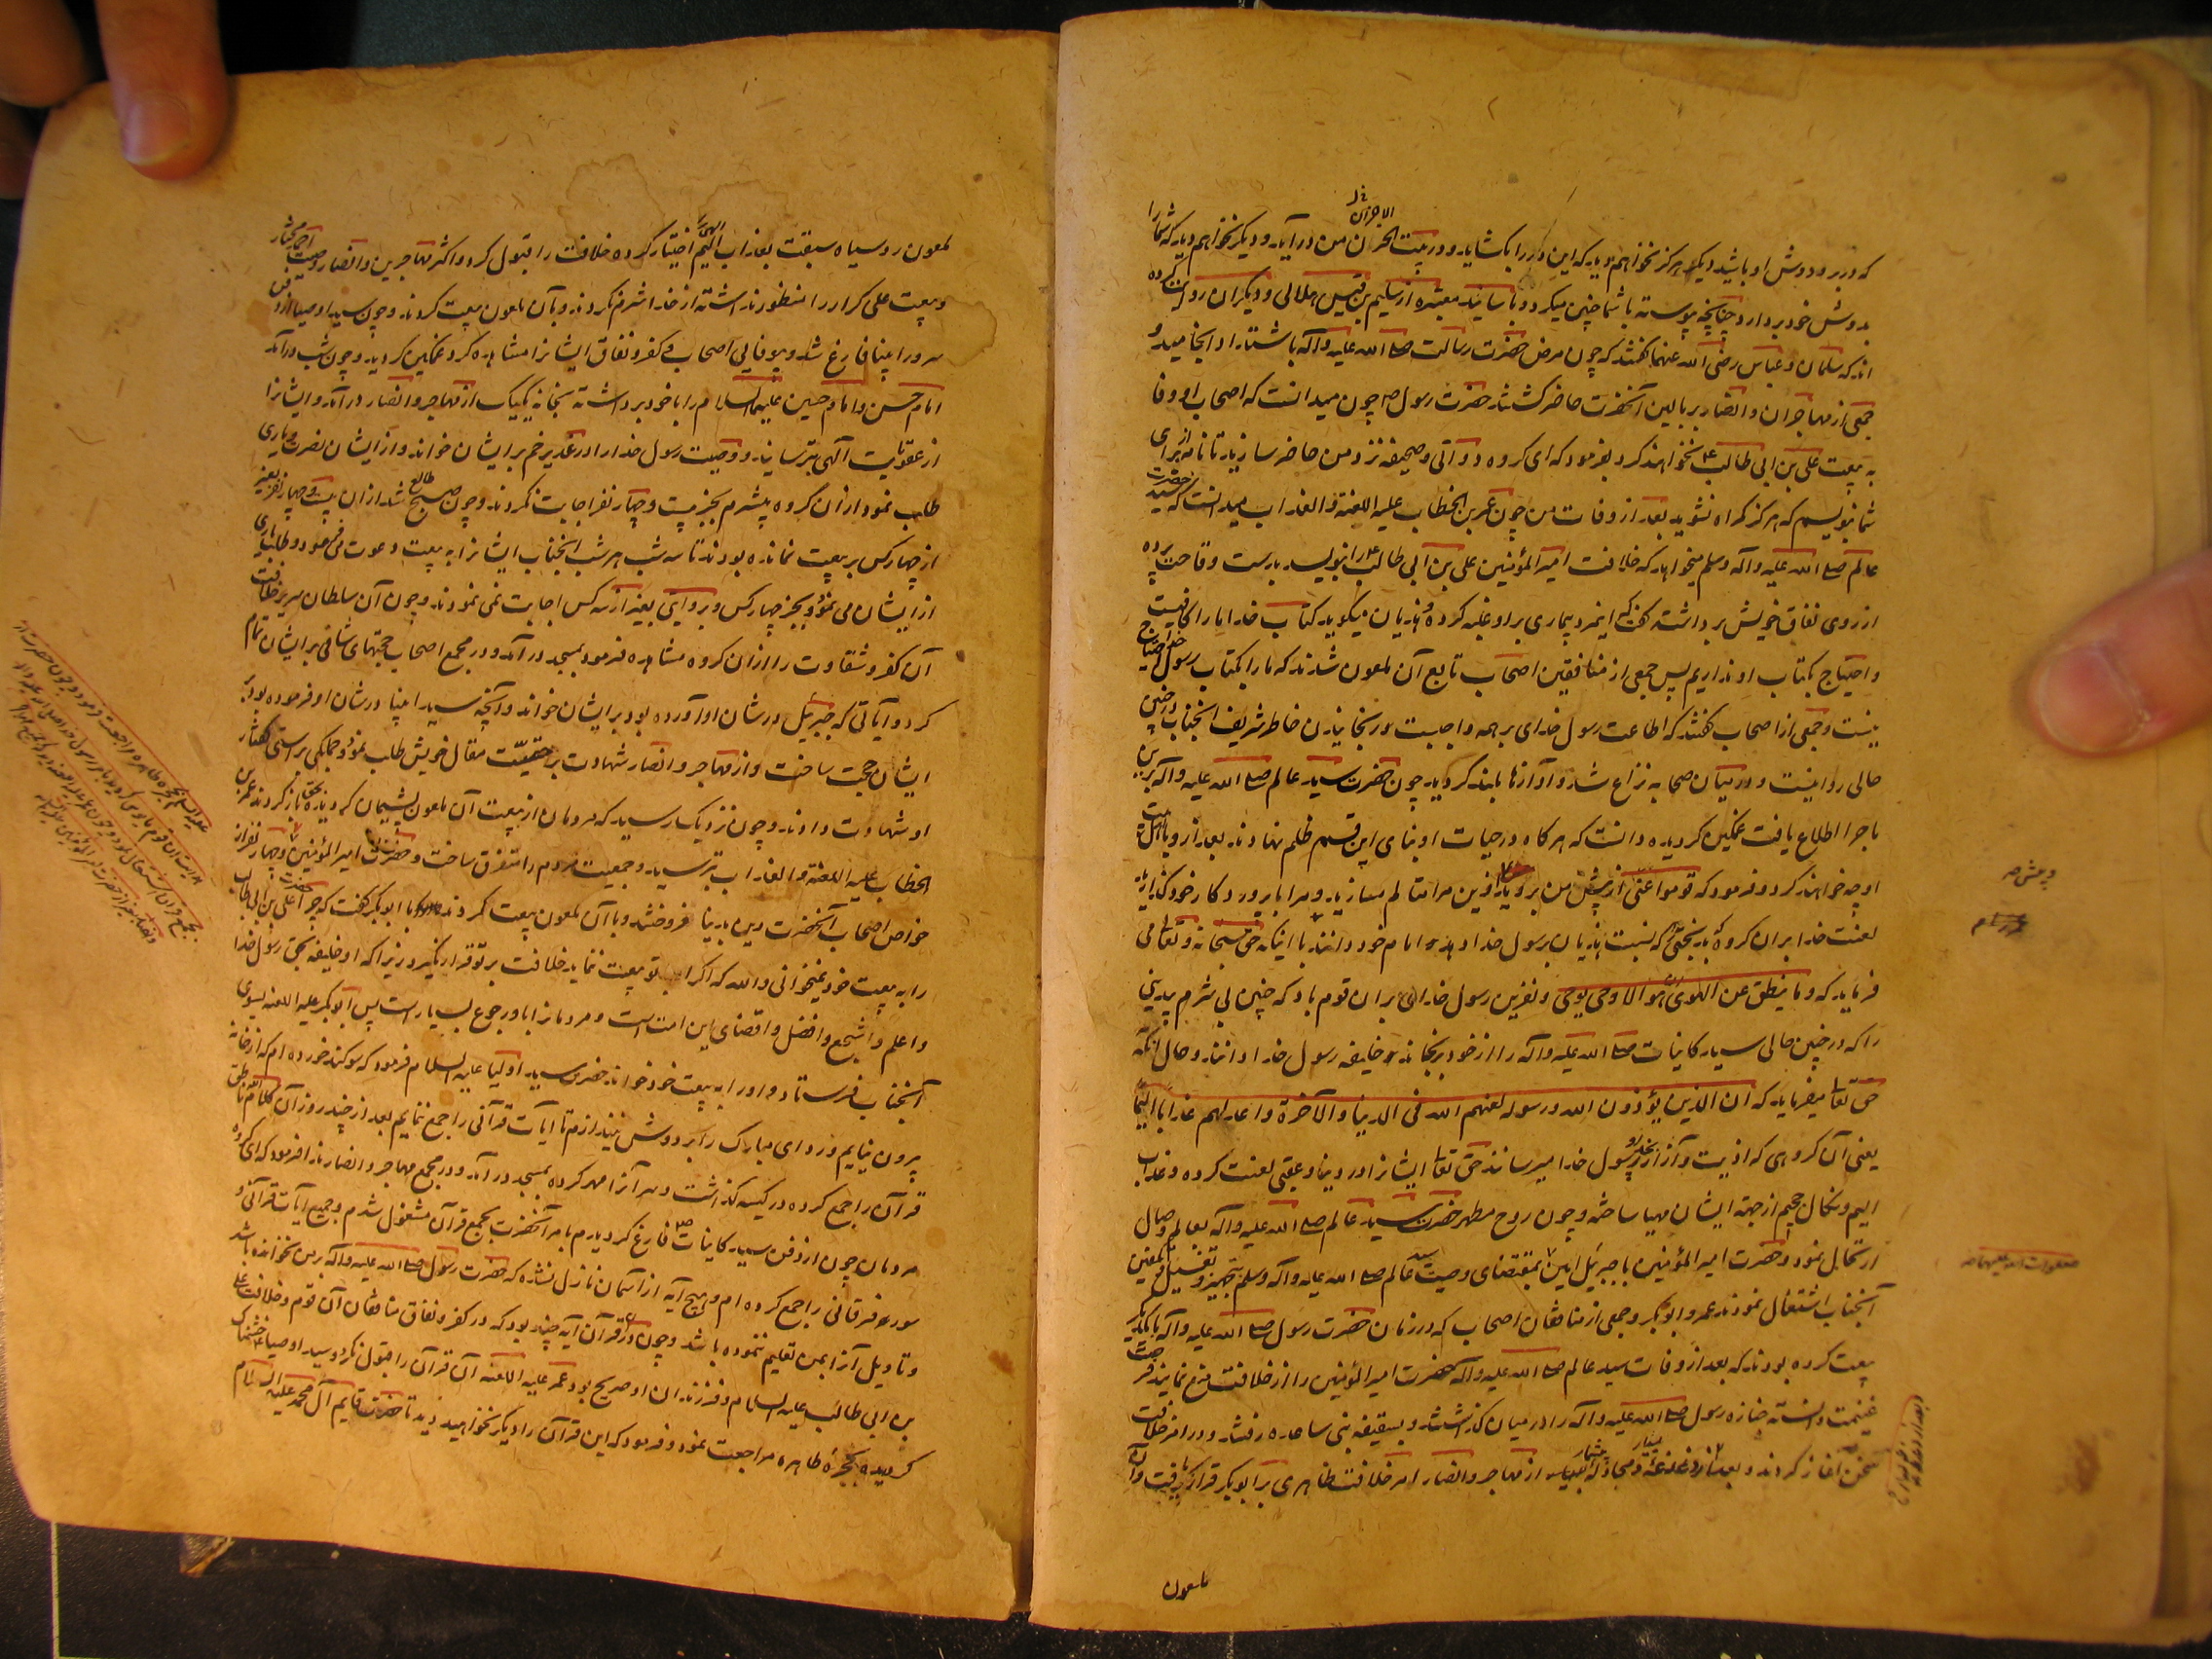 که در بر و دوش او باشید دیگر هرگز نخواهم دید که این در را بکشاید و در بیت الحزان من در آید و دیگر نخواهم دید که شما را
بدوش خود بردارد چنانچه پیوسته با شما چنین میکرد و باسانید معتبره از سلیم بن قیس هلالی و دیگران روایت کرده
اند که سلمان و عباس رضی الله عنهما گفتند که چون مرض حضرت رسالت صلی الله علیه وآله باشتداد انجامید و
جمعی از مهاجران و انصار بر بالین آنحضرت حاضر گشتند حضرت رسول ص چون میدانست که اصحاب او وفا
به بیعت علی بن ابی طالب ع نخواهند کرد بفرمود که ای گروه دواتی و صحیفه نزد من حاضر سازید تا نامه از برای
شما بنویسم که هرگز گمراه نشوید بعد از وفات من چون عمر بن الخطاب علیه اللعنة والعذاب میدانست که حضرت سید
عالم صلی الله علیه وآله وسلم میخواهد که خلافت امیر المؤمنین علی بن ابی طالب ع را بنویسد بدست وقاحت پرده
از روی نفاق خویش برداشته گفت که اینمرد بیماری بر او غلبه کرده و هذیان میگوید کتاب خدا ما را کافیست
و احتیاج بکتاب او نداریم پس جمعی از منافقین اصحاب تابع آن ملعون شدند که ما را بکتاب رسول خدا احتیاج
نیست و جمعی از اصحاب گفتند که اطاعت رسول خدای بر همه واجبست و رنجانیدن خاطر شریف آنجناب در چنین
حالی روا نیست و در میان صحابه نزاع شد و آوازها بلند گردید چون حضرت سید عالم صلی الله علیه وآله برین
ماجرا اطلاع یافت غمگین گردیده دانست که هرگاه در حیات او بنای این قسم ظلم نهادند بعد از و با اهل بیت
او چه خواهند کرد و فرمود که قوموا عنی از پیش من بروید و زین مرا متالم مسازید و مرا با پرورد کار خود گذارید
لعنت خدا بر ان گروه بدبختی که نسبت هذیان برسول خدا دهد و امام خود دانند با آنکه حق سبحانه وتعالی
فرماید که وما ینطق عن الهوی ان هو الا وحی یوحی و نفرین رسول خدای بر ان قوم باد که چنین بی شرم بیدینی
را که در چنین حالی سید کاینات صلی الله علیه وآله را از خود برنجاند و خلیفه رسول خدا دانند و حال آنکه
حق تعا میفرماید که ان الذین یؤذون الله ورسوله لعنهم الله فی الدنیا والآخرة واعد لهم عذابا الیما
یعنی آن گروهی که اذیت و آزار بخدا و رسول خدا میرسانند حق تعا ایشانرا در دنیا و عقبی لعنت کرده و عذاب
الیم و نکال جحیم از جهة ایشان مهیا ساخته و چون روح مطهر حضرت سید عالم صلی الله علیه وآله بعالم وصال
ارتحال نمود و حضرت امیر المؤمنین با جبرئیل امین بمقتضای وصیت سید عالم صلی الله علیه وآله وسلم بتجهیز و تغسیل و تکفین
آنجناب اشتغال نمودند عمر و ابوبکر و جمعی از منافقان اصحاب که در زمان حضرت رسول صلی الله علیه وآله با یکدیگر
بیعت کرده بودند که بعد از وفات سید عالم صلی الله علیه وآله حضرت امیر المؤمنین را از خلافت منع نمایند فرصت
غنیمت دانسته جنازه رسول صلی الله علیه وآله را در میان گذاشتند و بسقیفه بنی ساعده رفتند و در امر خلافت
سخن آغاز کردند و بعد از مجادله بسیار از مهاجر و انصار امر خلافت ظاهری بر ابوبکر قرار گرفت و آن
ملعون
ملعون روسیاه سبقت بعذاب الیم اختیار کرده خلافت را قبول کرد و اکثر مهاجرین و انصار وصیت احمد مختار
و بیعت علی کرار را منظور نداشته از خدا شرم نکردند و بآن ملعون بیعت کردند و چون سید اوصیا از دفن
سرور انبیا فارغ شد و بیوفایی اصحاب و کفر و نفاق ایشانرا مشاهده کرد غمگین گردید و چون شب درآمد
امام حسن و امام حسین علیهما السلام را با خود برداشته بخانه یکیک از مهاجر و انصار درآمد و ایشانرا
از عقوبات الهی بترسانید و وصیت رسول خدا را در غدیر خم بر ایشان خواند و از ایشان نصرت و یاری
طلب نمود از ان گروه بیشرم بجز بیست و چهار نفر اجابت نکردند و چون صبح طالع شد از ان بیست و چهار نفر بغیر
از چهار کس بر بیعت نمانده بودند تا سه شب هر شب آنجناب ایشانرا به بیعت دعوت می فرمود و طلب یاری
از ایشان می نمود و بجز چهار کس و بروایتی بغیر از سه کس اجابت نمی نمودند و چون آن سلطان سریر خلافت
آن کفر و شقاوت را از ان گروه مشاهده فرمود بمسجد درآمد و در مجمع اصحاب حجتهای شافی بر ایشان تمام
کرد و آیاتی که جبرئیل در شان او آورده بود بر ایشان خواند و آنچه سید انبیا در شان او فرموده بود بر
ایشان حجت ساخت و از مهاجر و انصار شهادت بر حقیت مقال خویش طلب نمود و همگی بر راستی گفتار
او شهادت دادند و چون نزدیک رسید که مردمان از بیعت آن ملعون پشیمان گردیده بحق باز گردند عمر بن
الخطاب علیه اللعنة والعذاب بترسید و جمعیت مردم را متفرق ساخت و حضرت امیر المؤمنین و چهار نفر از
خواص اصحاب آنحضرت دین بدنیا نفروختند و با آن ملعون بیعت نکردند با ابوبکر گفت که چرا حضرت علی بن ابی طالب
را به بیعت خود نمیخوانی والله که اگر او با تو بیعت ننماید خلافت بر تو قرار نگیرد زیرا که او خلیفه بحق رسول خدا
و اعلم و اشجع و افضل و اقضای این امت است و مردمانرا باو رجوع بسیار است پس ابوبکر علیه اللعنه بسوی
آنجناب فرستاد و او را به بیعت خود خواند حضرت سید اولیا علیه السلام فرمود که سوگند خورده ام که از خانه
بیرون نیایم و ردای مبارک را بر دوش نیندازم تا آیات قرآنی را جمع ننمایم بعد از چند روز آن کلام الله ناطق
قرآن را جمع کرده در کیسه گذاشت و سر آنرا مهر کرده بمسجد درآمد و در مجمع مهاجر و انصار ندا فرمود که ای گروه
مردمان چون از دفن سید کاینات ص فارغ گردیدم بامر آنحضرت بجمع قرآن مشغول شدم و جمیع آیات قرآنی و
سوره فرقانی را جمع کرده ام و هیچ آیه از آسمان نازل نشده که حضرت رسول صلی الله علیه وآله بر من نخوانده باشد
و تاویل آنرا بمن تعلیم ننموده باشد و چون در قرآن آیه چند بود که در کفر و نفاق منافقان آن قوم و خلافت علی
بن ابی طالب علیه السلام و فرزندان او صریح بود عمر علیه اللعنه آن قرآن را قبول نکرد و سید اوصیا ع خشمناک
گردیده بحجره طاهره مراجعت نمود و فرمود که این قرآن را دیگر نخواهید دید تا حضرت قایم آل محمد علیه السلام